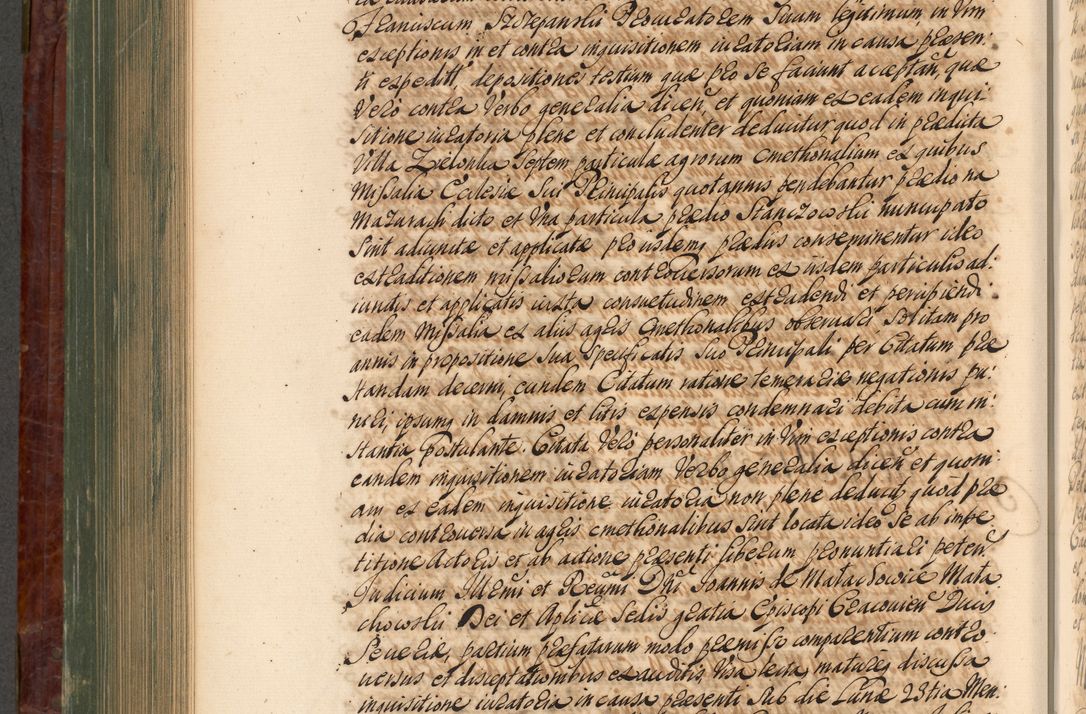 Franciscum Szczepanski Procuratorem Suum legitimum, in Vim
exceptionis in et contra inquisitionem iuratoriam in causa præsen:
ti expedit, depositiones testium quæ pro se faciunt acceptan, quæ
Verò contra Verbo generalia dicen, et quoniam ex eadem inqui:
sitione iuratoria plene et concludenter deducitur quod in prædicta
Villa Zielonka Septem particulæ agrorum Cmethonalium ex quibus
Missalia Ecclesiæ Sui Principalis quotannis pendebantur prædio na
Mazurach dicto et Una particula prædio Stanczowskii nuncupato
Sint adiunctæ et applicatæ pro iisdemq prædiis conseminentur ideo
extraditionem missaliorum controversorum ex iisdem particulis ad:
iunctis et applicatis iuxta consuetudinem extradendi et percipiendi
eadem Missalia ex aliis agris Cmethonalibus observari Solitam pro
annis in propositione Sua Specificatis Suo Principali per Citatum præ
standam decerni, eundem Citatum ratione temerariæ negationis pu:
niri, ipsumq in damnis et litis expensis condemnari debita cum in:
stantia Postulante. Citata Verò personaliter in Vim exceptionis contra
eandem inquisitionem iuratoriam Verbo generalia dicen et quoni:
am ex eadem inquisitione iuratoria non plene deducit, quod præ
dia controversa in agris cmethonalibus Sint locata ideo Se ab impe
titione Actoris et ab actione præsenti liberum pronuntiari peten.
Judicium Illmi et Revmi Dni Joannis de Małachowice Mała
chowski Dei et Aplicæ Sedis gratia Episcopi Cracovien Ducis
Severiæ, partium præfatarum modo præmisso comparentium contro
versiis et disceptationibus exauditis Visa lecta, matureq discussa
inquisitione iuratoria in causa præsenti sub die Lunæ 23tia Men: